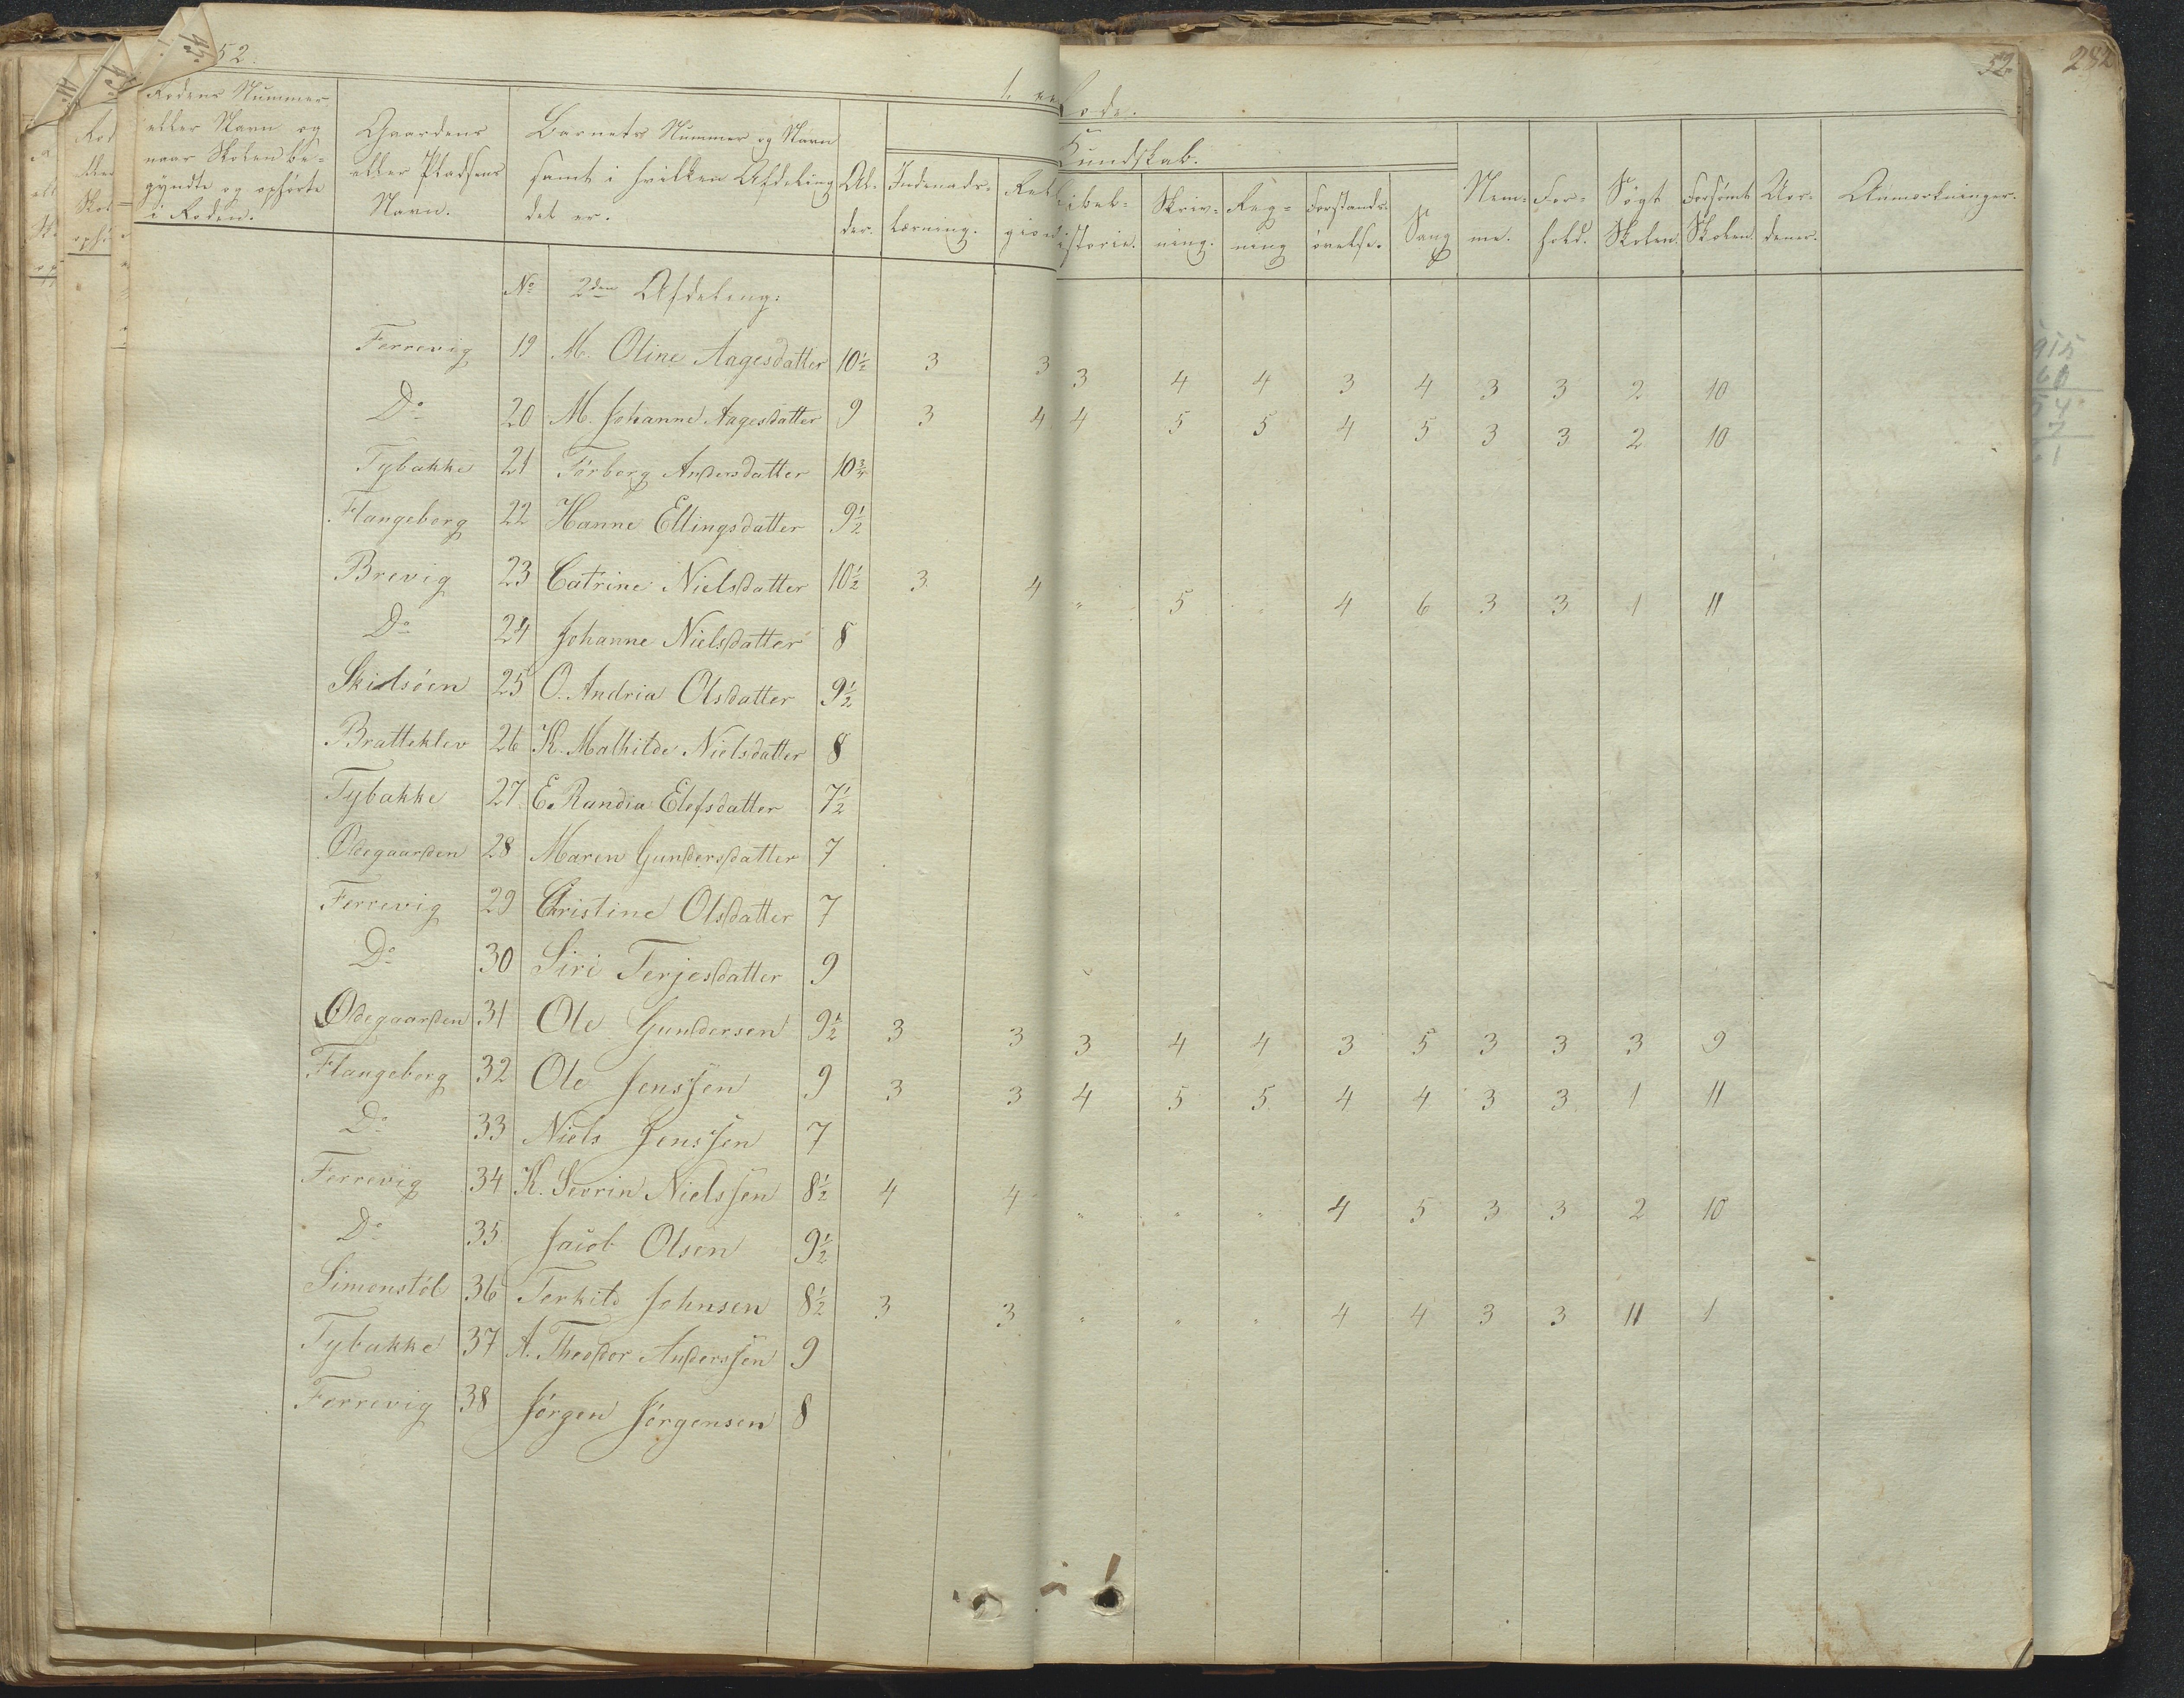 52.
52.
282
1. Rode.
Rodens Nummer eller Navn og naar Skolen begyndte og ophørte i Roden.
Gaardens eller Pladsens Navn.
Barnets Nummer og Navn samt i hvilken Afdeling det er.
Alder.
Kundskab.
Indenadslæsning.
Religion
Bibelhistorie.
Skrivning.
Regning
Forstandsøvelse.
Sang
Nemme.
Forhold.
Søgt Skolen.
Forsømt Skolen.
Uordener.
Anmærkninger.
No 2den Afdeling:
Ferrevig 19 M. Oline Aagesdatter 10½ 3 3 3 4 4 3 4 3 3 2 10
Do 20 M. Johanne Aagesdatter 9 3 4 4 5 5 4 5 3 3 2 10
Tybakke 21 Torborg Andersdatter 10¾
Flangeborg 22 Hanne Ellingsdatter 9½
Brevig 23 Catrine Nielsdatter 10½ 3 4 " 5 " 4 6 3 3 1 11
Do 24 Johanne Nielsdatter 8
Skidsöen 25 O. Andria Olsdatter 9½
Bratteklev 26 K. Mathilde Nielsdatter 8
Tybakke 27 E. Randia Elefsdatter 7½
Ödegaarden 28 Maren Gundersdatter 7
Ferrevig 29 Christine Olsdatter 7
Do 30 Siri Terjesdatter 9
Ödegaarden 31 Ole Gundersen 9½ 3 3 3 4 4 3 5 3 3 3 9
Flangeborg 32 Ole Jenssen 9 3 3 4 5 5 4 4 3 3 1 11
Do 33 Niels Jenssen 7
Ferrevig 34 K. Severin Nielssen 8½ 4 4 " " " 4 5 3 3 2 10
Do 35 Jacob Olsen 9½
Simonstöl 36 Terkild Johnsen 8½ 3 3 " " " 4 4 3 3 11 1
Tybakke 37 A. Theodor Anderssen 9
Ferrevig 38 Jörgen Jörgensen 8